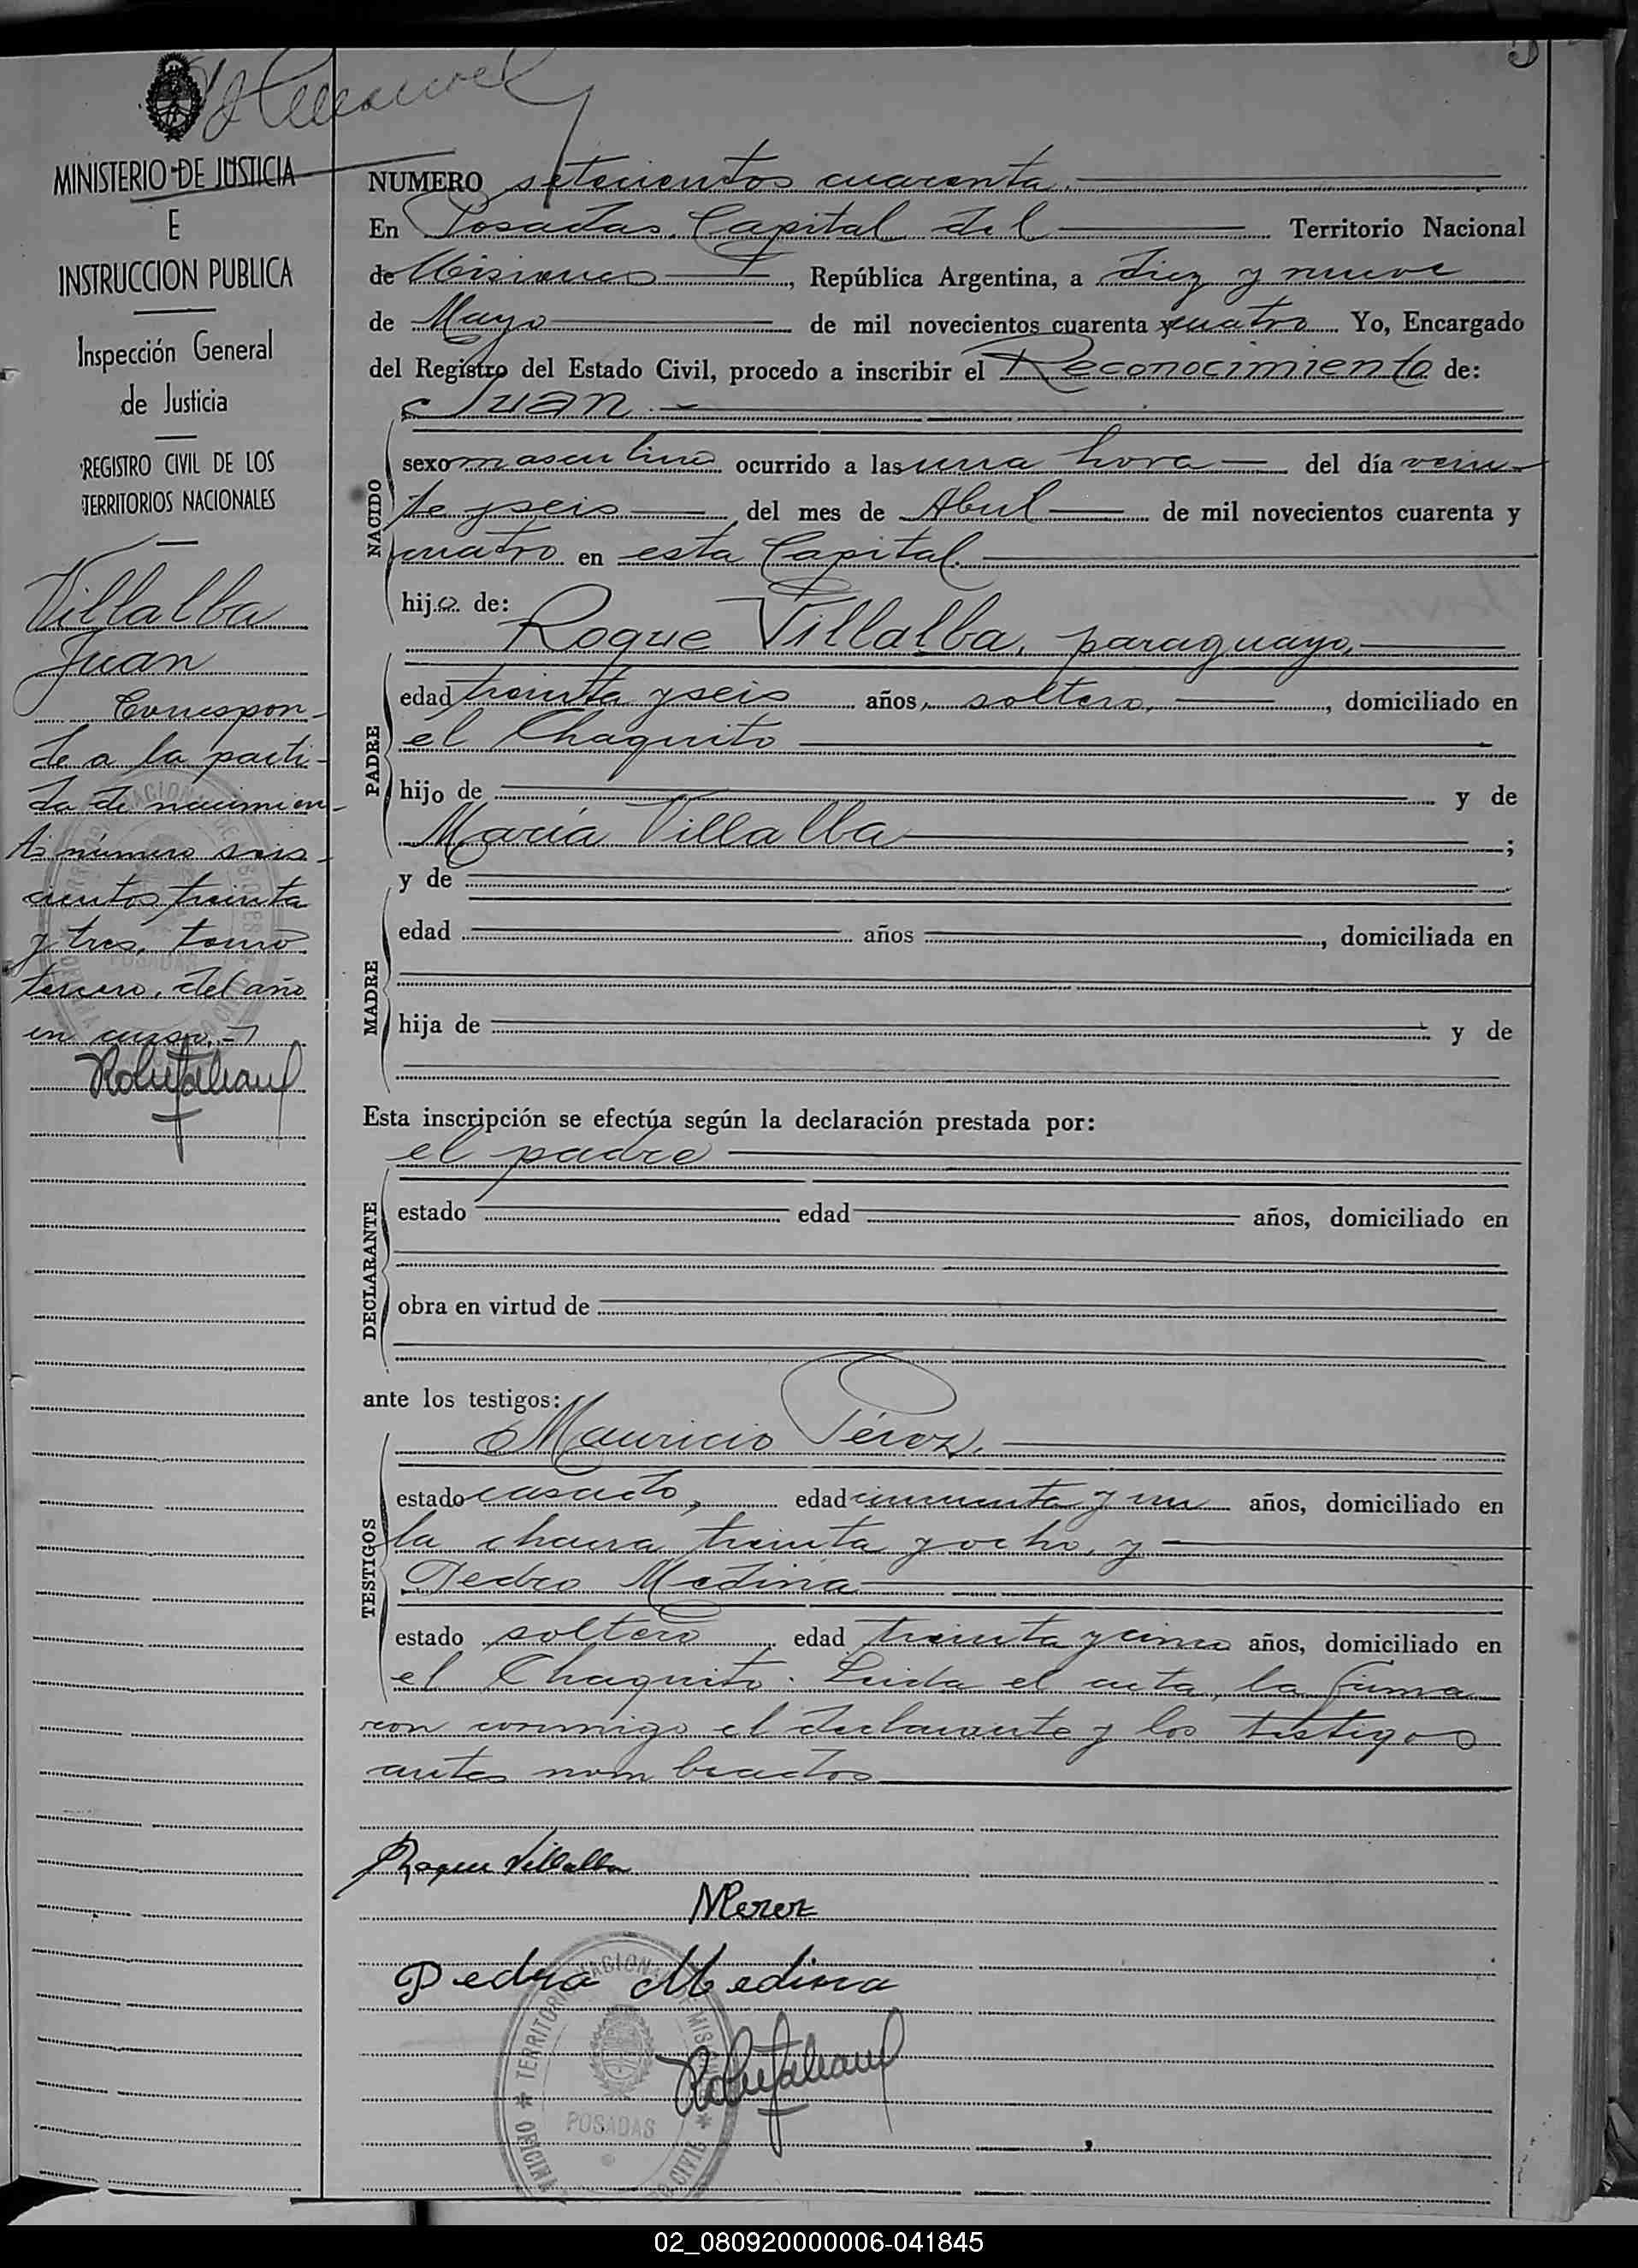 MINISTERIO DE JUSTICIA
E
INSTRUCCION PUBLICA
Inspección General
de Justicia
REGISTRO CIVIL DE LOS
TERRITORIOS NACIONALES
Villalba
Juan
Correspon-
de a la parti-
da de nacimien-
to número seis-
cientos treinta
y tres, tomo
tercero, del año
en curso.-
NUMERO setecientos cuarenta.
En Posadas, Capital del Territorio Nacional
de Misiones, República Argentina, a diez y nueve
de Mayo de mil novecientos cuarenta y cuatro Yo, Encargado
del Registro del Estado Civil, procedo a inscribir el Reconocimiento de:
Juan.-
NACIDO
sexo masculino ocurrido a las una hora del día vein-
te y seis del mes de Abril de mil novecientos cuarenta y
cuatro en esta Capital.
hijo de:
PADRE
Roque Villalba, paraguayo,
edad treinta y seis años, soltero, domiciliado en
el Chaquito
hijo de y de
María Villalba ;
MADRE
y de
edad años , domiciliada en
hija de y de
Esta inscripción se efectúa según la declaración prestada por:
el padre
DECLARANTE
estado edad años, domiciliado en
obra en virtud de
ante los testigos:
TESTIGOS
Mauricio Pérez,
estado casado, edad cincuenta y un años, domiciliado en
la chacra treinta y ocho, y
Pedro Medina
estado soltero edad treinta y cinco años, domiciliado en
el Chaquito. Leida el acta, la firma
ron conmigo el declarante y los testigos
antes nombrados
Roque Villalba
MPerez
Pedro Medina
TERRITORIO NACIONAL DE MISIONES
POSADAS
02_080920000006-041845